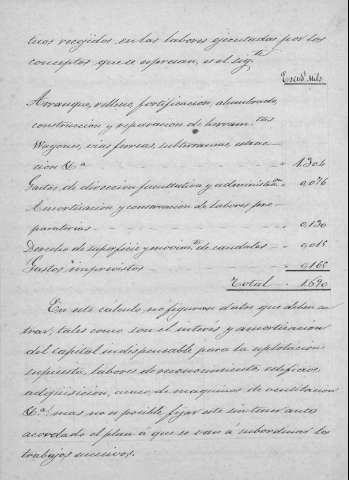 ticos recojidos en las labores ejecutadas por los
conceptos que se espresan, es el sigte
Escuds Mils
Arranque, relleno, fortificacion, alumbrado,
construccion y reparacion de herramtas
Wagones, vias ferreas, subterraneas, estrac-
cion &a " 1.304
Gastos de direccion facultativa y administon " 0,076
Amortizacion y conservacion de labores pre-
paratorias " 0,130
Derecho de superficie y movimto de caudales " 0,015
Gastos imprevistos " 0,165
Total " 1.690
En este calculo no figuran datos que deben en-
trar, tales como son el interes y amortizacion
del capital indispensable para la esplotacion
supuesta, labores de reconocimiento, edificios
adquisicion, de maquinas de ventilacion
&a mas no es posible fijar este sin tener antes
acordado el plan á que se van á subordinar los
trabajos sucesivos.